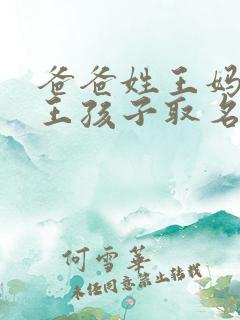 爸爸姓王妈
王孩子取名
何雪华
未经同意禁止转载